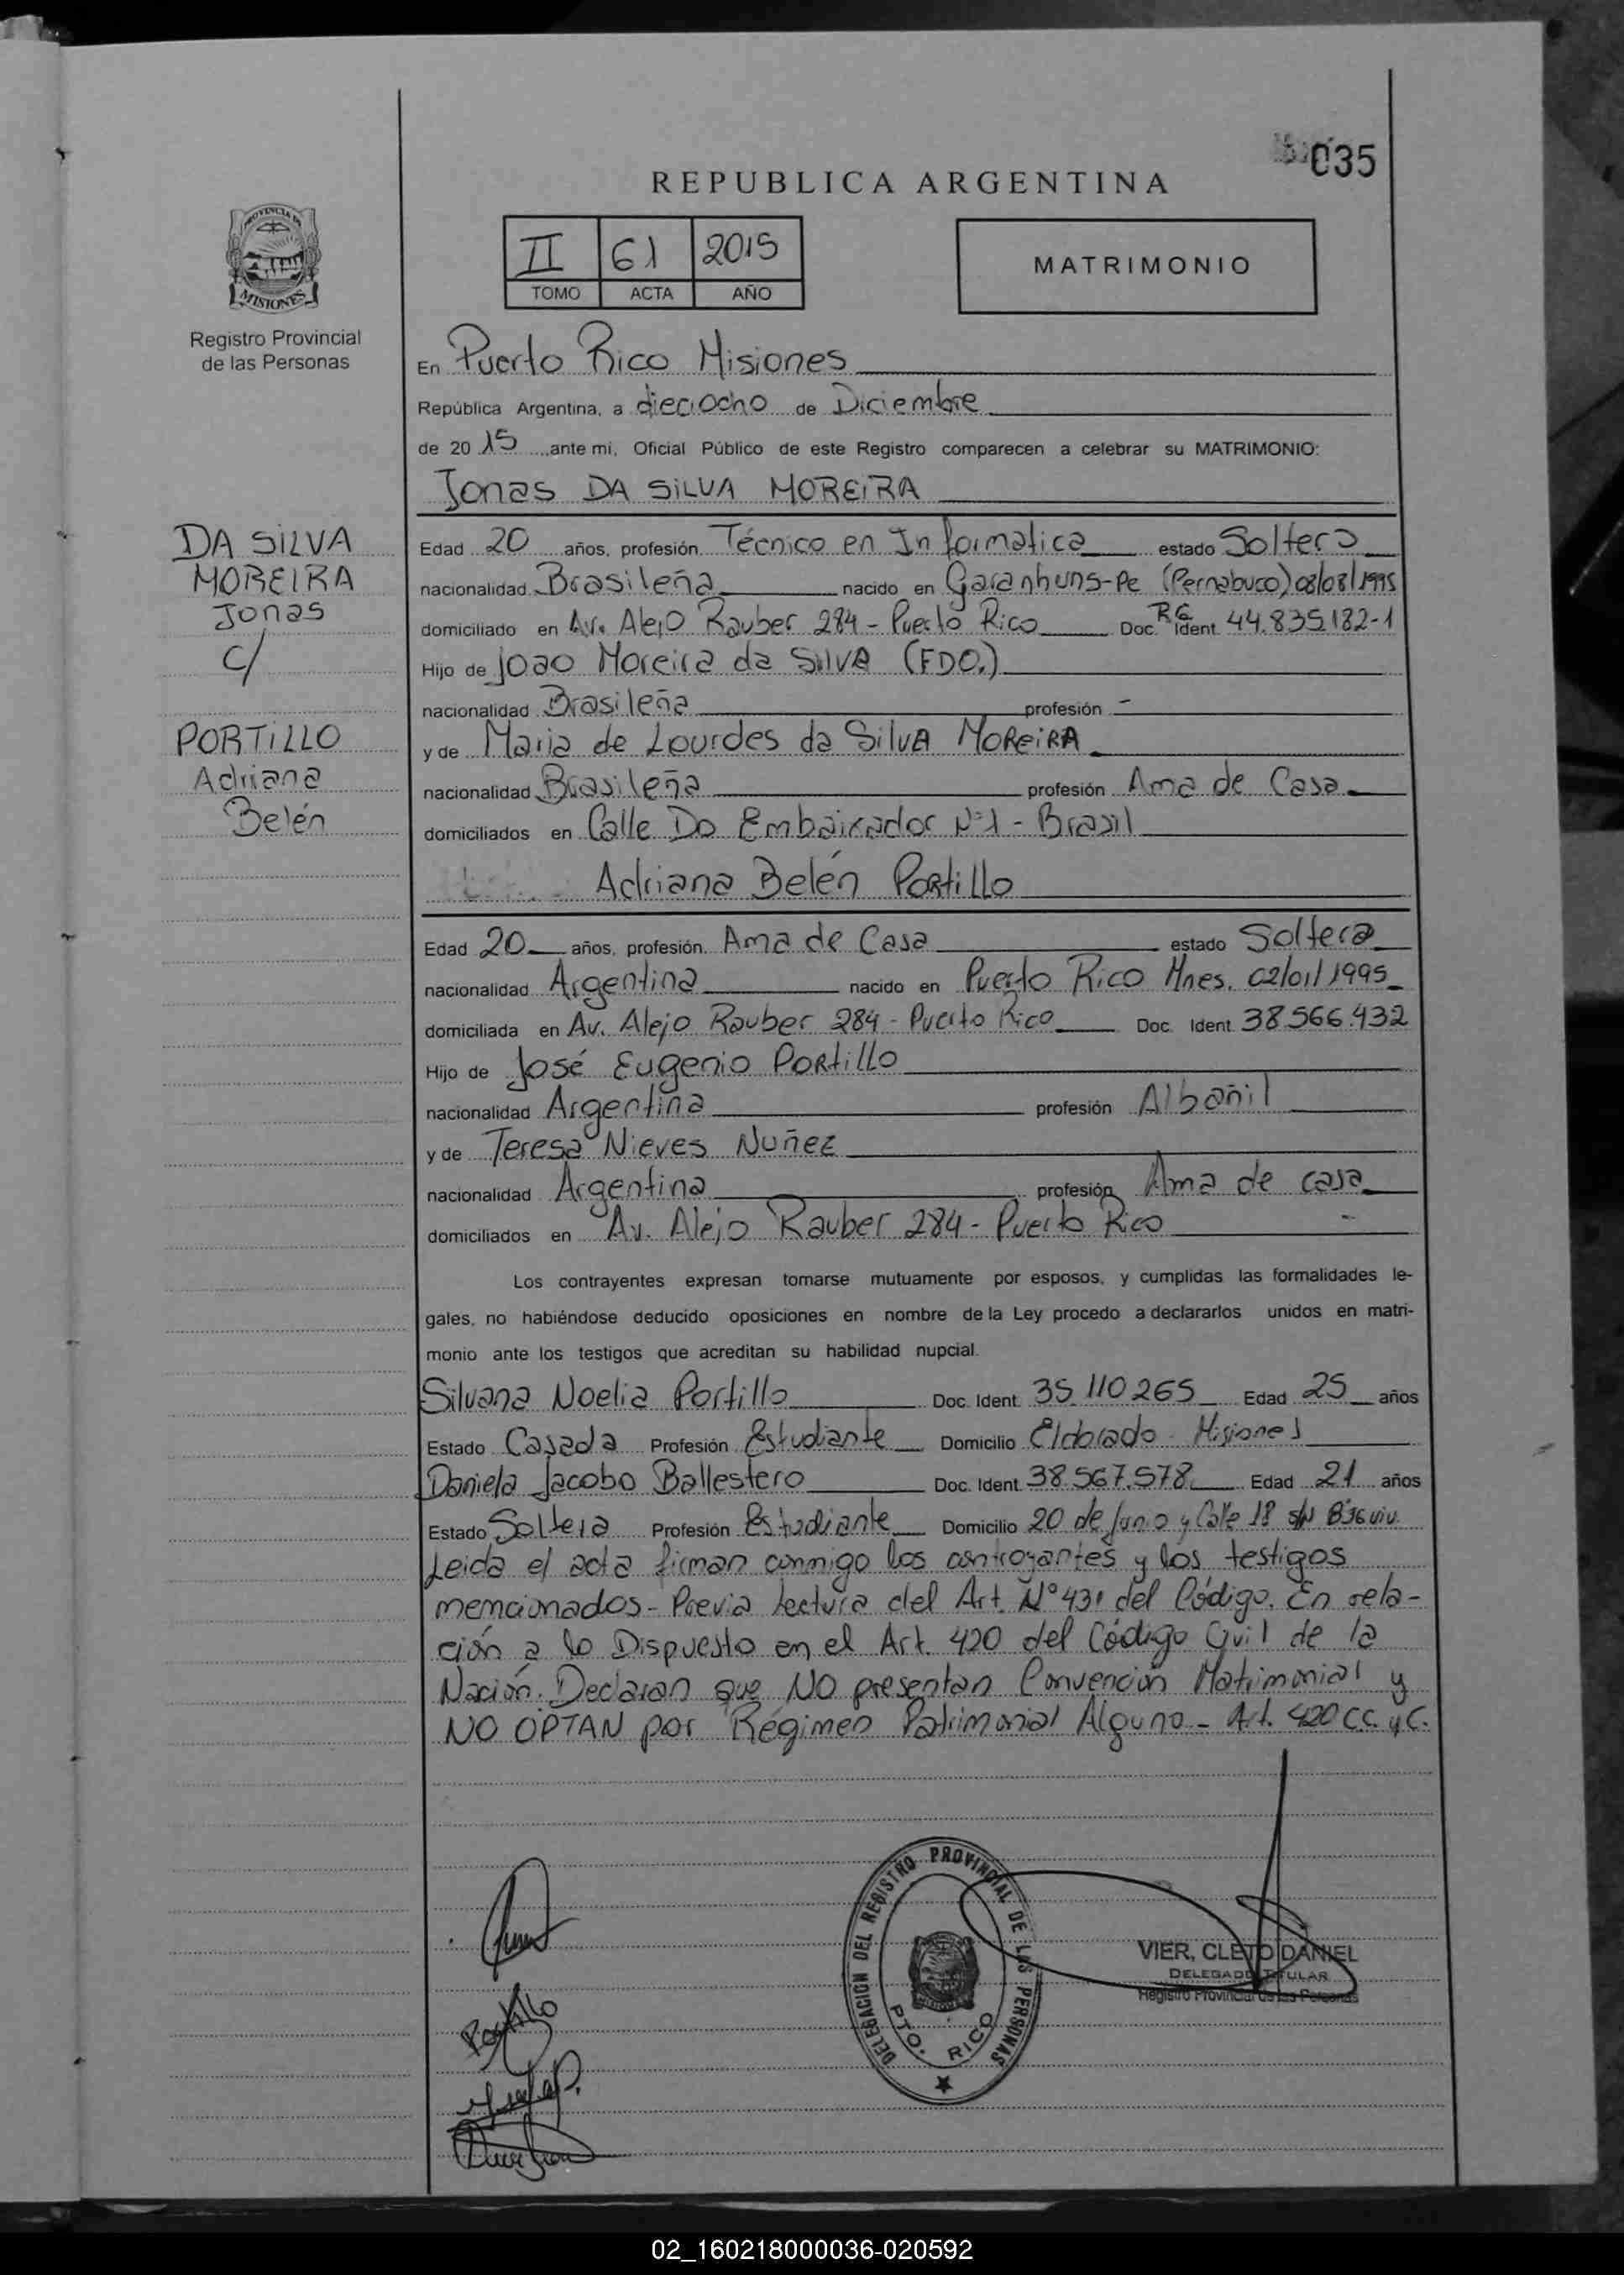 035
REPUBLICA ARGENTINA
II 61 2015
TOMO ACTA AÑO
MATRIMONIO
PROVINCIA DE
MISIONES
Registro Provincial
de las Personas
En Puerto Rico Misiones
República Argentina, a dieciocho de Diciembre
de 20 15 ante mi, Oficial Público de este Registro comparecen a celebrar su MATRIMONIO:
Jonas DA SILVA MOREIRA
DA SILVA
MOREIRA
Jonas
c/
PORTILLO
Adriana
Belén
Edad 20 años, profesión Técnico en Informatica estado Soltero
nacionalidad Brasileña nacido en Garanhuns-Pe (Pernabuco) 08/08/1995
domiciliado en Av. Alejo Rauber 284 - Puerto Rico Doc. RG Ident. 44.835.182-1
Hijo de Joao Moreira da SilVA (FDO.)
nacionalidad Brasileña profesión -
y de Maria de Lourdes da SilVA MOREIRA
nacionalidad Brasileña profesión Ama de Casa
domiciliados en Calle Do Embaixador Nº1 - Brasil
Adriana Belén Portillo
Edad 20 años, profesión Ama de Casa estado Soltera
nacionalidad Argentina nacido en Puerto Rico Mnes. 02/01/1995
domiciliada en Av. Alejo Rauber 284 - Puerto Rico Doc. Ident. 38.566.432
Hijo de José Eugenio Portillo
nacionalidad Argentina profesión Albañil
y de Teresa Nieves Nuñez
nacionalidad Argentina profesión Ama de casa
domiciliados en Av. Alejo Rauber 284 - Puerto Rico
Los contrayentes expresan tomarse mutuamente por esposos, y cumplidas las formalidades le-
gales, no habiéndose deducido oposiciones en nombre de la Ley procedo a declararlos unidos en matri-
monio ante los testigos que acreditan su habilidad nupcial.
Silvana Noelia Portillo Doc. Ident. 35.110.265 Edad 25 años
Estado Casada Profesión Estudiante Domicilio Eldorado - Misiones
Daniela Jacobo Ballestero Doc. Ident. 38.567.578 Edad 21 años
Estado Soltera Profesión Estudiante Domicilio 20 de Junio y Calle 18 s/N
Leida el acta firman conmigo los contrayantes y los testigos
mencionados - Previa lectura del Art. Nº 431 del Código. En rela-
ción a lo Dispuesto en el Art. 420 del Código Civil de la
Nación. Declaran que NO presentan Convención Matrimonial y
NO OPTAN por Régimen Patrimonial Alguno - Art. 420 C.C. y C.
DELEGACION DEL REGISTRO PROVINCIAL DE LAS PERSONAS
PTO. RICO
VIER, CLETO DANIEL
DELEGADO TITULAR
Registro Provincial de las Personas
Portillo
02_160218000036-020592